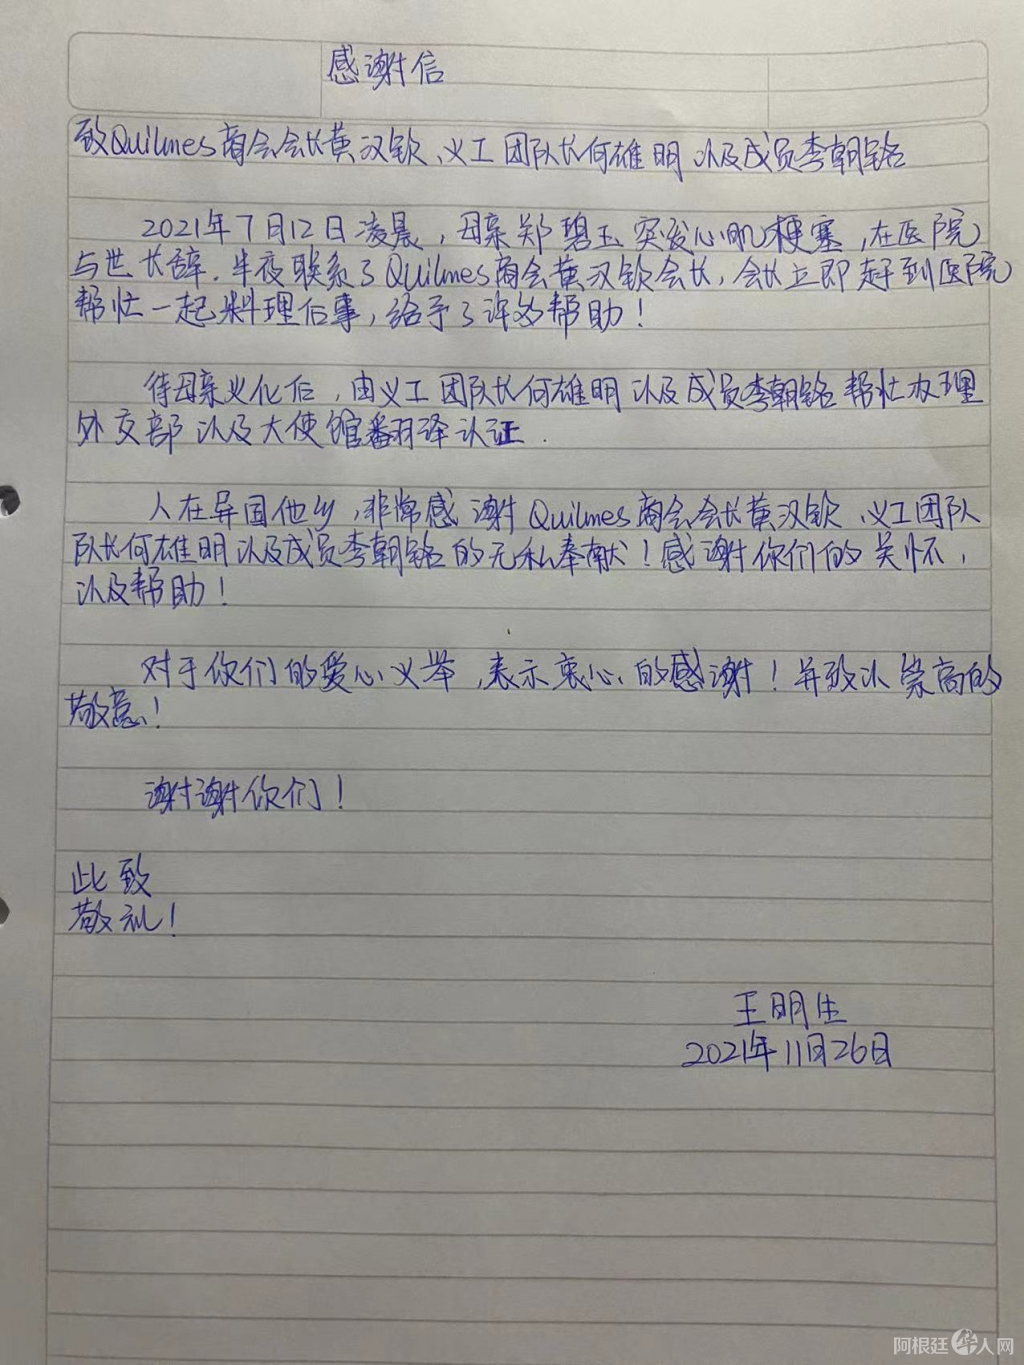 感谢信
致Quilmes商会会长黄汉钦、义工团队长何雄明以及成员李朝铭
2021年7月12日凌晨，母亲郑碧玉突发心肌梗塞，在医院
与世长辞．半夜联系了Quilmes商会黄汉钦会长，会长立即赶到医院
帮忙一起料理后事，给予了许多帮助！
待母亲火化后，由义工团队长何雄明以及成员李朝铭帮忙办理
外交部以及大使馆翻译认证．
人在异国他乡，非常感谢Quilmes商会会长黄汉钦、义工团队
队长何雄明以及成员李朝铭的无私奉献！感谢你们的关怀，
以及帮助！
对于你们的爱心义举，表示衷心的感谢！并致以崇高的
敬意！
谢谢你们！
此致
敬礼！
王明生
2021年11月26日
阿根廷华人网